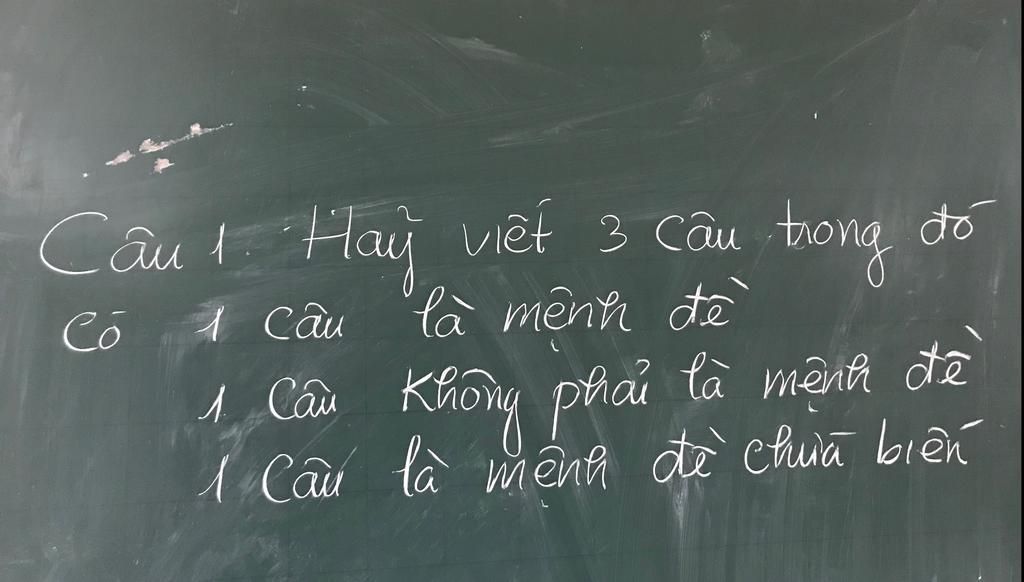 Câu 1. Hãy viết 3 câu trong đó
có 1 câu là mệnh đề
1 câu không phải là mệnh đề
1 câu là mệnh đề chứa biến